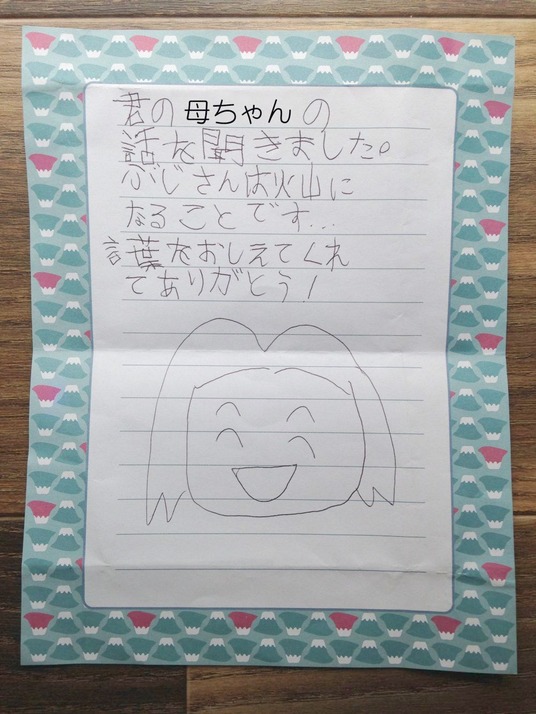 君の 母ちゃん の
話を聞きました。
ふじさんは火山に
なることです...
言葉をおしえてくれ
てありがとう!